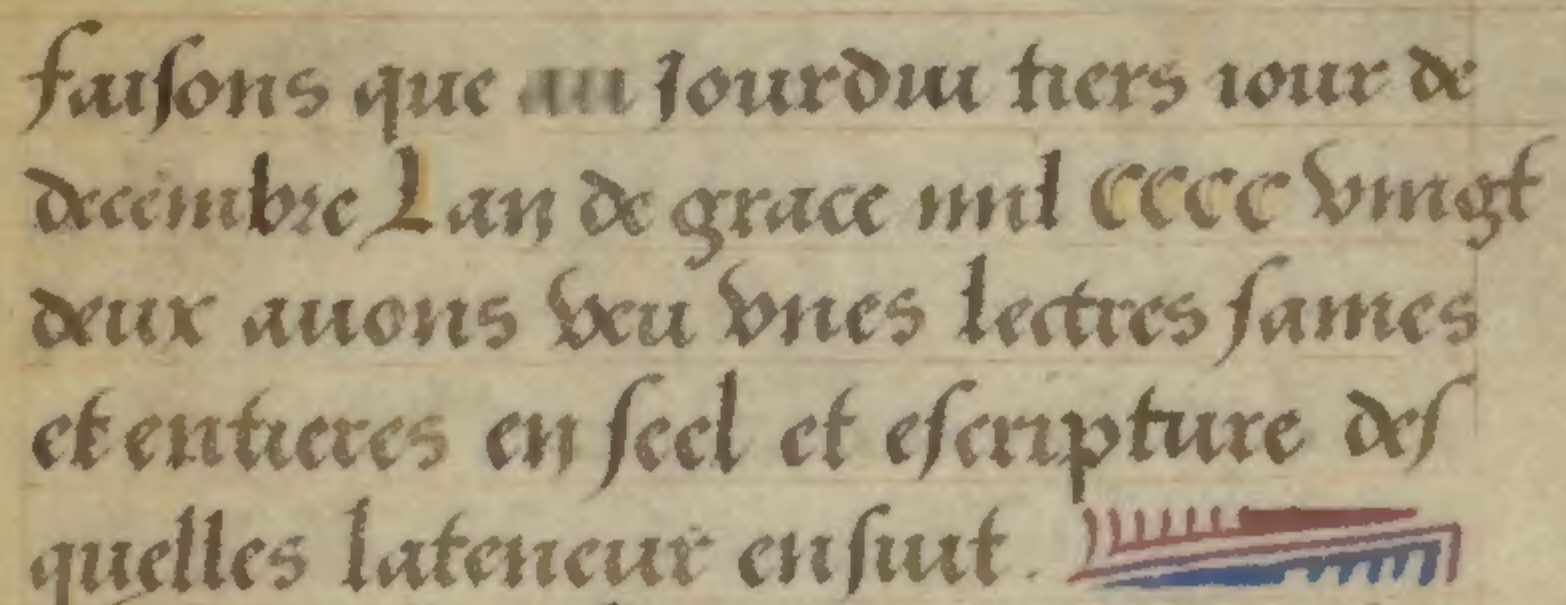 faisons que au Jourdui tiers iour de
decembre Lan de grace mil CCCC vingt
deux auons veu vnes lectres saines
et entieres en seel et escripture des
quelles lateneur ensuit .